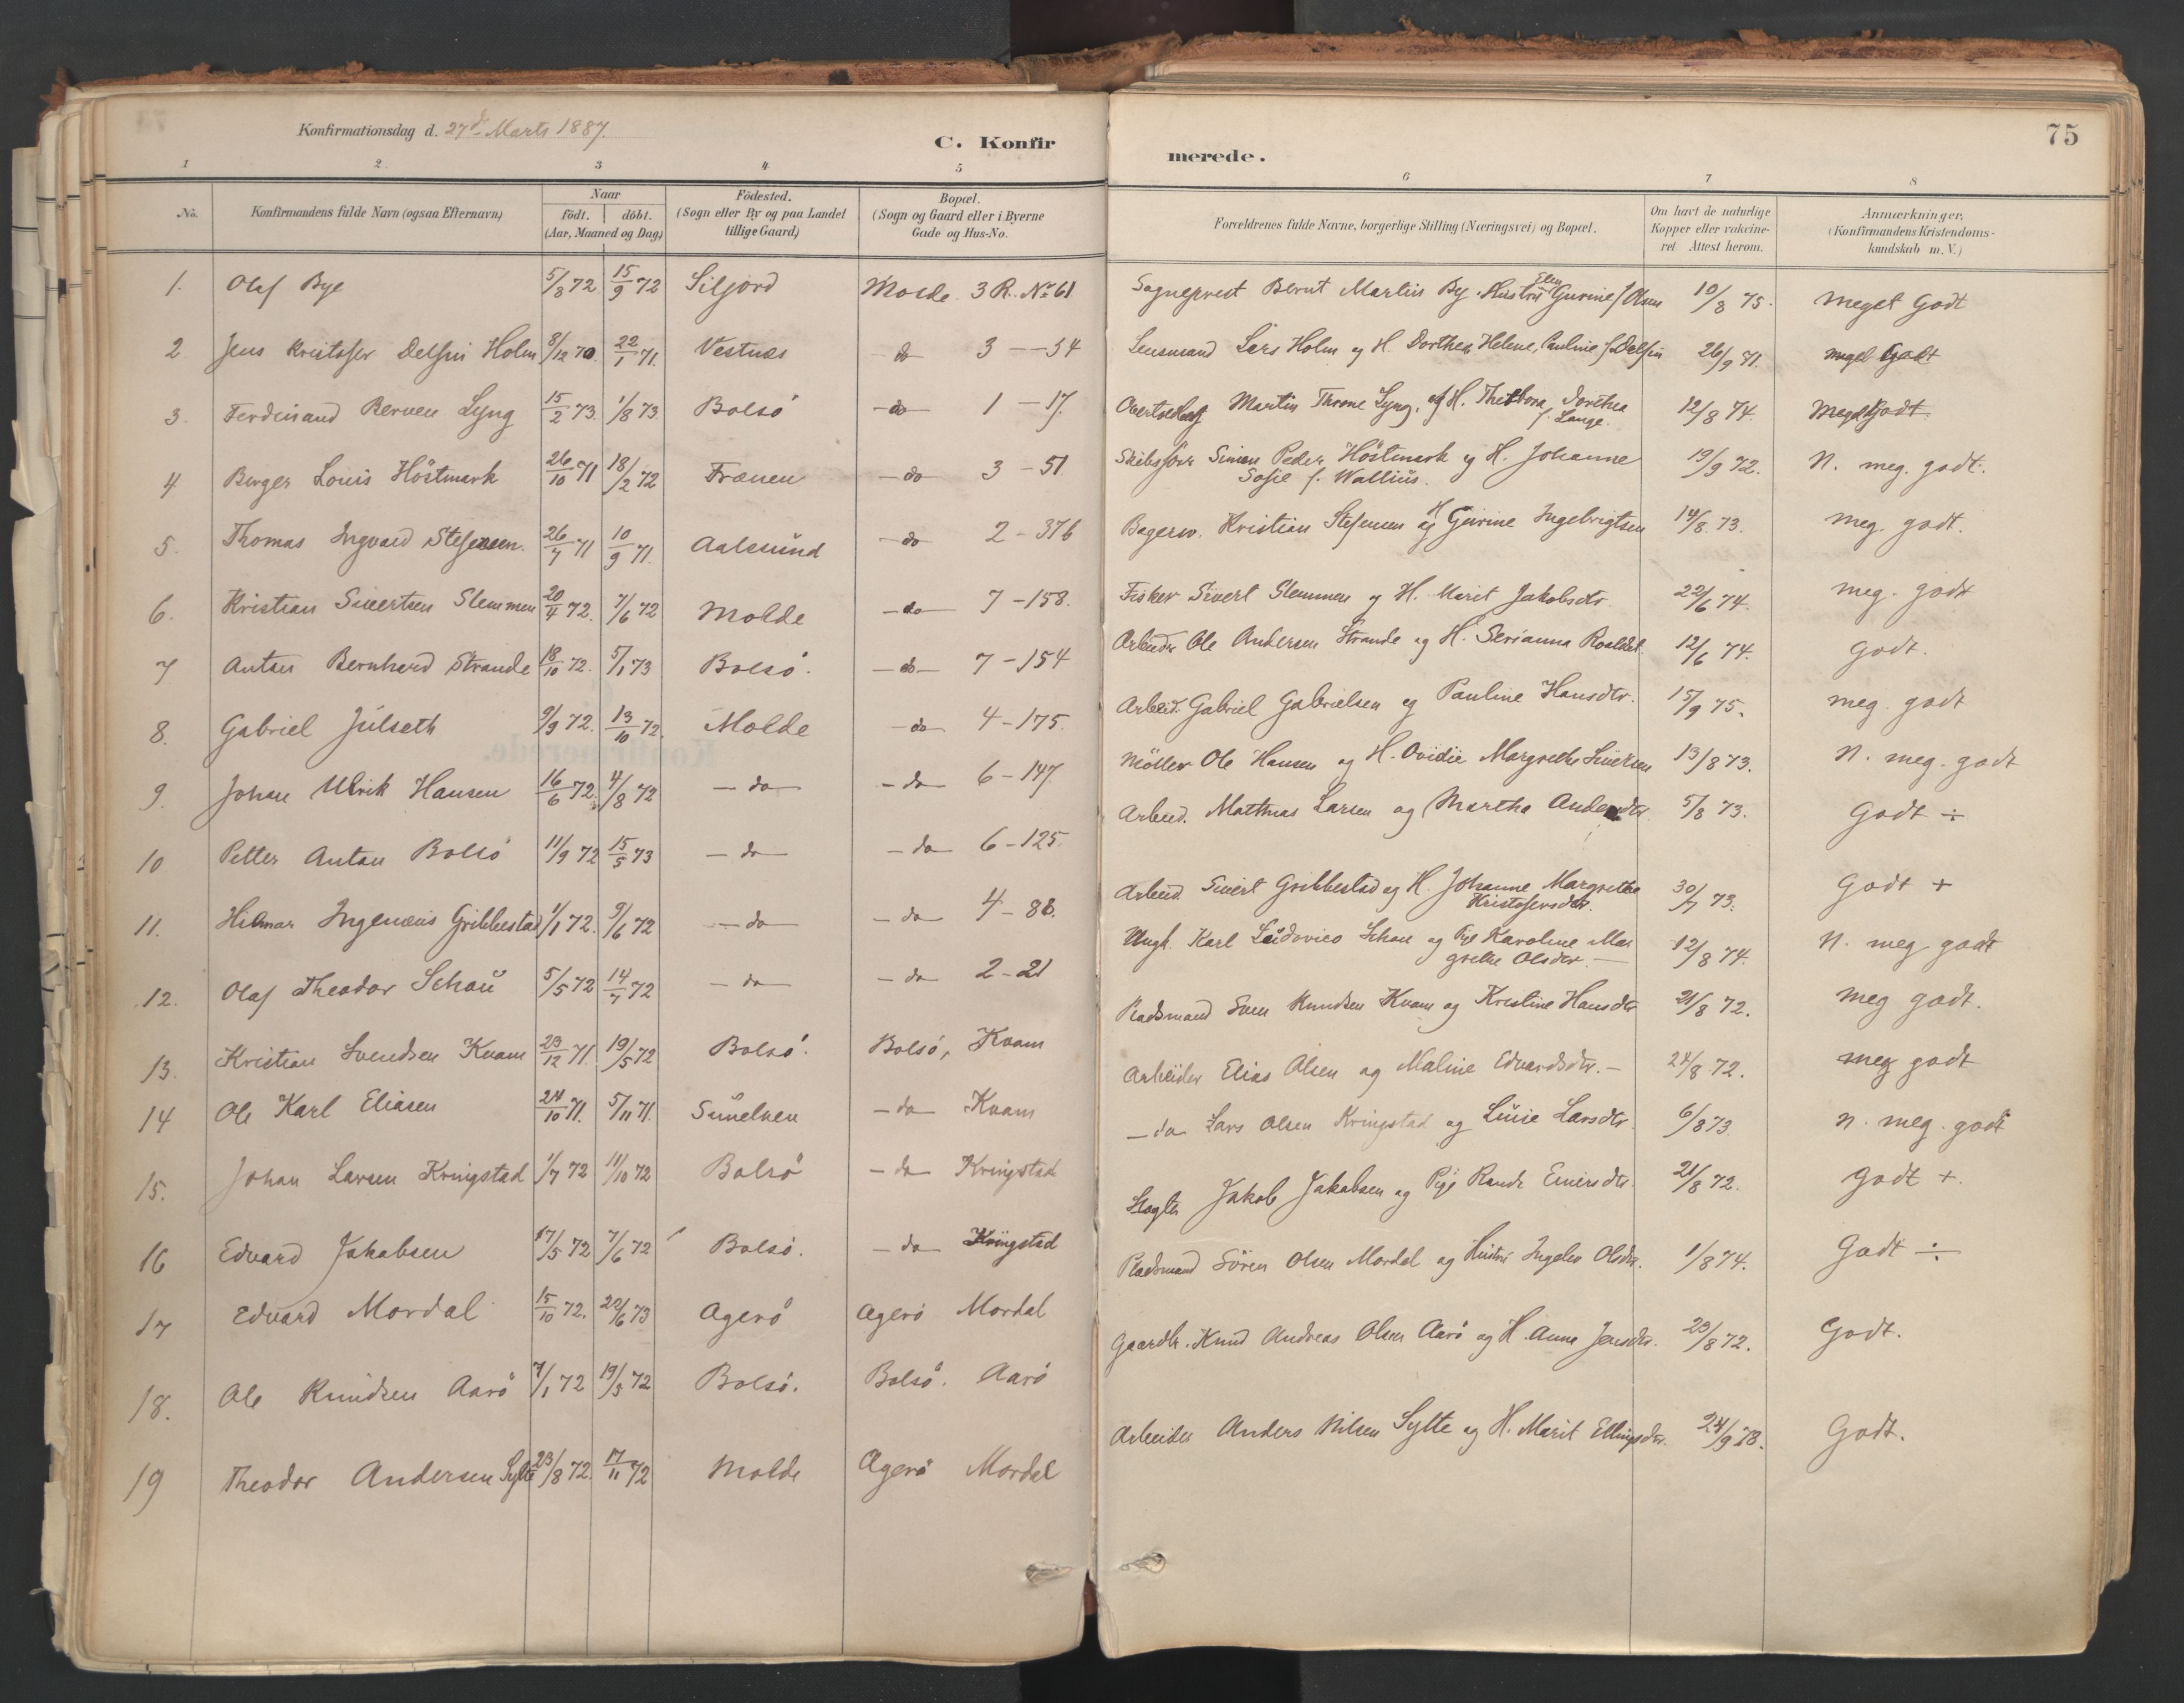 Konfirmationsdag d. 27d Marts 1887.
C. Konfirmerede.
75
1 2 3 4 5 6 7 8
No. Konfirmandens fulde Navn (ogsaa Efternavn) Naar födt. döbt. (Aar, Maaned og Dag) Födested. (Sogn eller By og paa Landet tillige Gaard) Bopæl. (Sogn og Gaard eller i Byerne Gade og Hus-No. Forældrenes fulde Navne, borgerlige Stilling (Næringsvei) og Bopæl. Om havt de naturlige Kopper eller vakcineret. Attest herom. Anmærkninger. (Konfirmandens Kristendomskundskab m. V.)
1. Olaf Bye 5/8 72 15/9 72 Siljord Molde 3 R. No 61 Sogneprest Bernt Martin By. Hustru Elen Gurine f. Olsen 10/8 75. meget Godt
2 Jens Kristofer Delfin Holm 8/12 70 22/1 71. Vestnæs - do 3 - 54 Lensmand Lars Holm og H. Dorthea Helene, Pauline f. Delfin 26/9 71. meget Godt
3. Ferdinand Bernen Lyng 15/2 73. 1/8 73 Bolsö - do - 1 - 17. Martin Throne Lyng, og H. Theodora Dorthea f. Lange. 12/8 74. Meget Godt.
4 Birger Louis Höstmark 26/10 71 18/2 72 Frænen - do 3 - 51 Skibsförer Simen Peder Höstmark og H. Johanne Sofie f. Wallius. 19/9 72. N. meg. godt.
5. Thomas Ingvard Stefensen. 26/7 71 10/9 71. Aalesund - do 2 - 376 Bagersv. Kristian Stefensen og H Gurine Ingebrigtsen 14/8 73. meg. godt.
6. Kristian Sivertsen Slemmen 20/4 72. 7/6 72 Molde - do 7 - 158. Fisker Sivert Slemmen og H. Marit Jakobsdtr 22/6 74. meg. godt
7 Anton Bernhard Strande 18/10 72. 5/1 73 Bolsö. - do - 7 - 154 Arbeider Ole Andersen Strande og H. Serianna Roaldst. 12/6 74. Godt.
8. Gabriel Julseth 9/9 72. 13/10 72. Molde - do 4 - 175. Arbeid. Gabriel Gabrielsen og Pauline Hansdtr. 15/9 75. meg. godt
9. Johan Ulrik Hansen 16/6 72. 4/8 72 - do - - do 6 - 147 Möller Ole Hansen og H. Ovidie Margrethe Sivertsen 13/8 73. N. meg. godt
10 Petter Anton Bolsö 11/9 72 15/5 73 - do - - do 6 - 125. Arbeid. Mathias Larsen og Martha Andersdtr. 5/8 73. Godt ÷
11. Hilmar Ingenæus Gribbestad 1/1 72. 9/6 72 - do - - do 4 - 88. Arbeid. Sivert Gribbestad og H. Johanne Margrethe Kristofersdtr. 30/7 73. Godt +
12. Olaf Theodor Schau 5/5 72 14/7 72 - do - - do 2 - 21 Ungk. Karl Ludovico Schou og Pige Karoline Margrethe Olsdtr. - 12/8 74. N. meg godt
13. Kristian Svendsen Kvam 23/12 71. 19/5 72 Bolsö. Bolsö, Kvam Pladsmand Sven Knudsen Kvam og Kristine Hansdtr 21/8 72. meg godt.
14 Ole Karl Eliasen 24/10 71. 5/11 71. Sunelven - do - Kvam Arbeider Elias Olsen og Maline Edvardsdtr. - 24/8 72. meg godt
15. Johan Larsen Kringstad 1/7 72 11/10 72 Bolsö - do - Kringstad - do - Lars Olsen Kringstad og Lusie Larsdtr 6/8 73. n. meg. godt
16 Edvard Jakobsen 17/5 72 7/6 72 Bolsö. - do - Kringstad Slagter Jakob Jakobsen og Pige Randi Einersdtr. 21/8 72. Godt +.
17 Edvard Mordal 15/10 72. 22/6 73 Agerö Agerö Mordal Pladsmand Sören Olsen Mordal og Hustru Ingeleu Olsdtr. 1/8 74. Godt ÷
18. Ole Knudsen Aarö 7/1 72 19/3 72 Bolsö. Bolsö. Aarö Gaardbr. Knud Andreas Olsen Aarö og H. Anne Jensdtr. 23/8 72. Godt.
19 Theodor Andersen Sylte 23/8 72. 17/11 72 Molde Agerö Mordal Arbeider Anders Nilsen Sylte og H. Marit Ellingsdtr. 24/9 78. Godt.